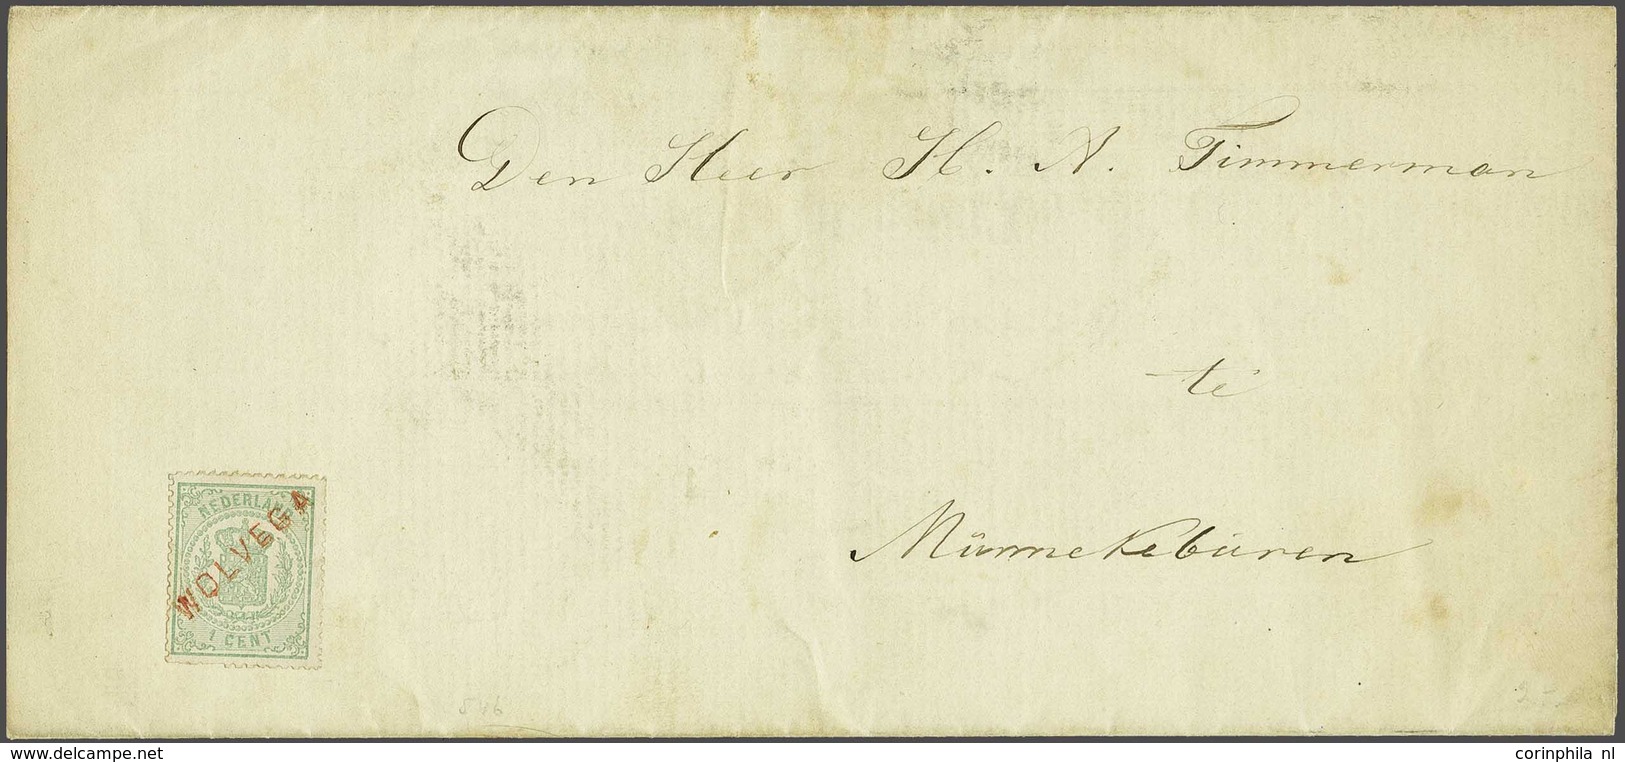 Den Heer H. N. Timmerman
te
Münnekebüren
NEDERLAND
WOLVEGA
1 CENT
546
delcampe.net
corinphila nl